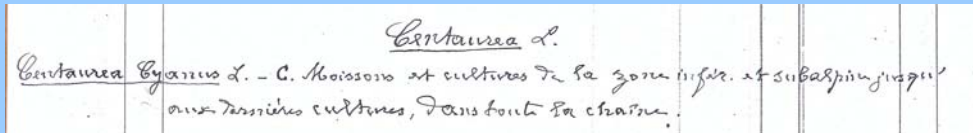 Centaurea L.
Centaurea Cyanus L. - C. Moissons et cultures de la zone infér. et subalpine jusqu'
aux dernières cultures, dans toute la chaîne.